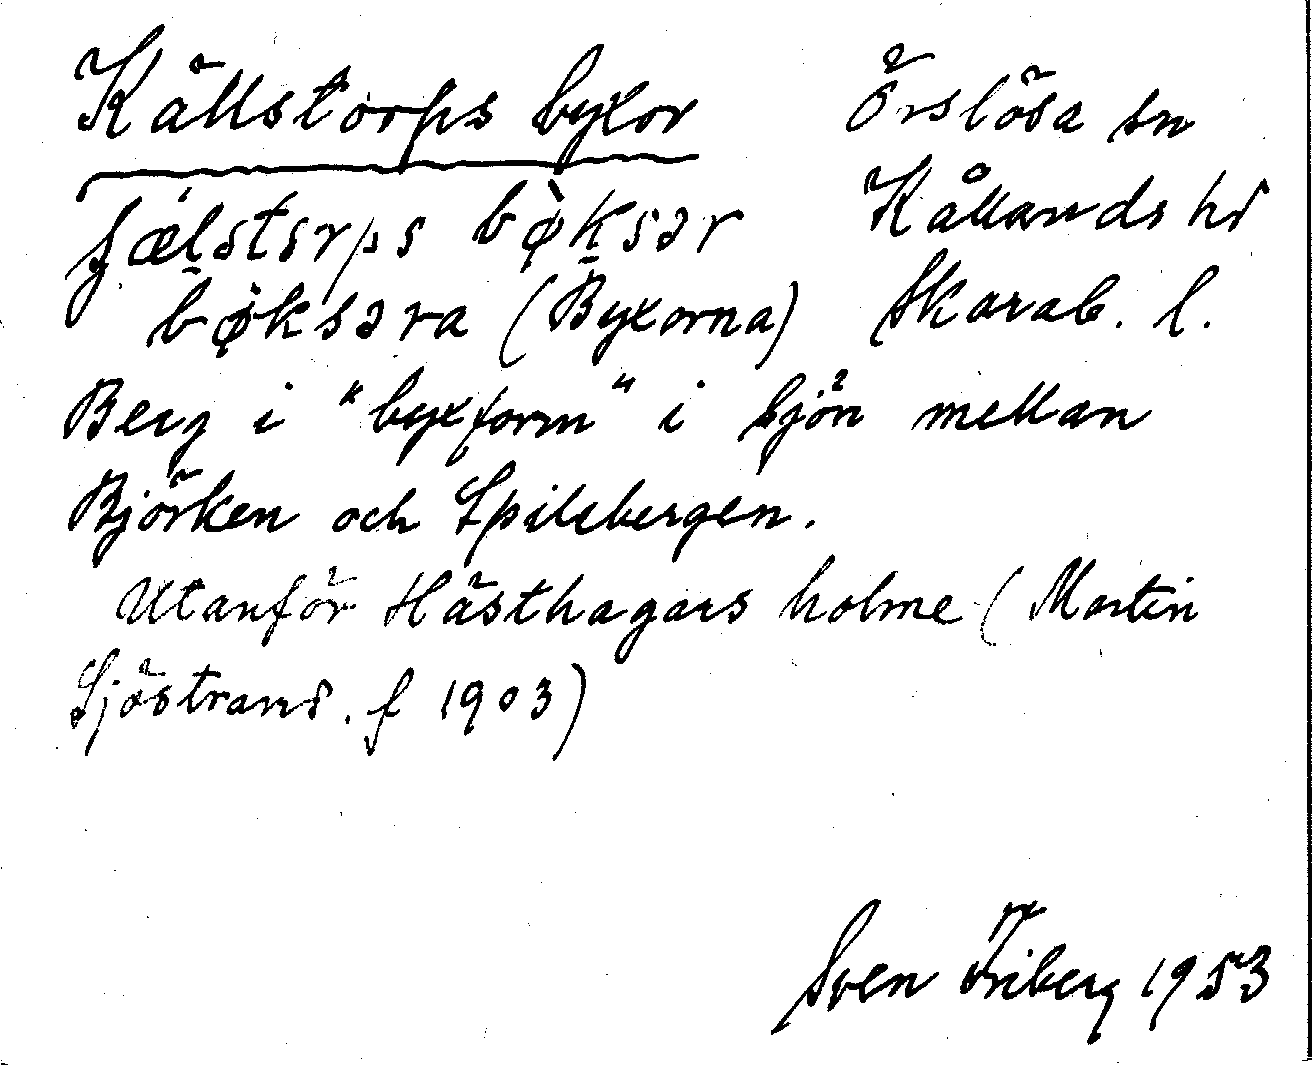 Källstorps byxor
Örslösa sn
Kållands hd
Skarab. l.
bøksəra (Byxorna)
Berg i "byxform" i sjön mellan
Björken och Spilsbergen.
Utanför Hästhagars holme (Martin
Sjöstrand. f 1903)
Sven Friberg 1953